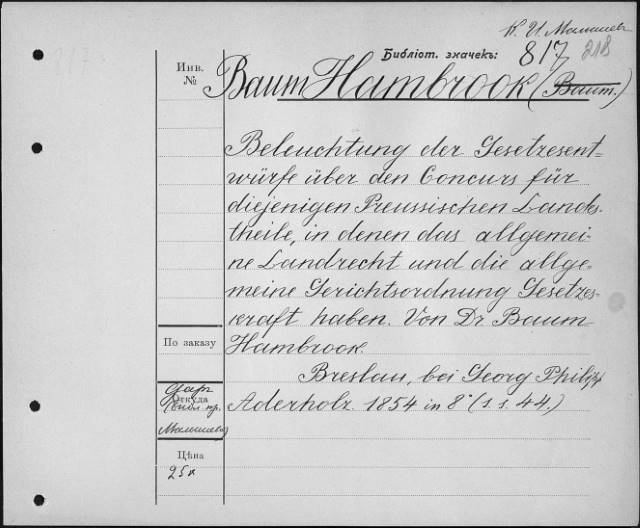 К. И. Малышев
Библіот. значекъ: 817 218
Инв.
№
Baum Hambrook (Baum.)
Beleuchtung der Gesetzesent-
würfe über den Concurs für
diejenigen Preussischen Lands-
theile, in denen das allgemei-
ne Landrecht und die allge-
meine Gerichtsordnung Gesetzes-
kraft haben. Von Dr. Baum
По заказу
Hambrook.
Breslau, bei Georg Philipp
Aderholz. 1854 in 8° (s. s. 44.)
Даръ
Откуда
Малышева
Цѣна
25к